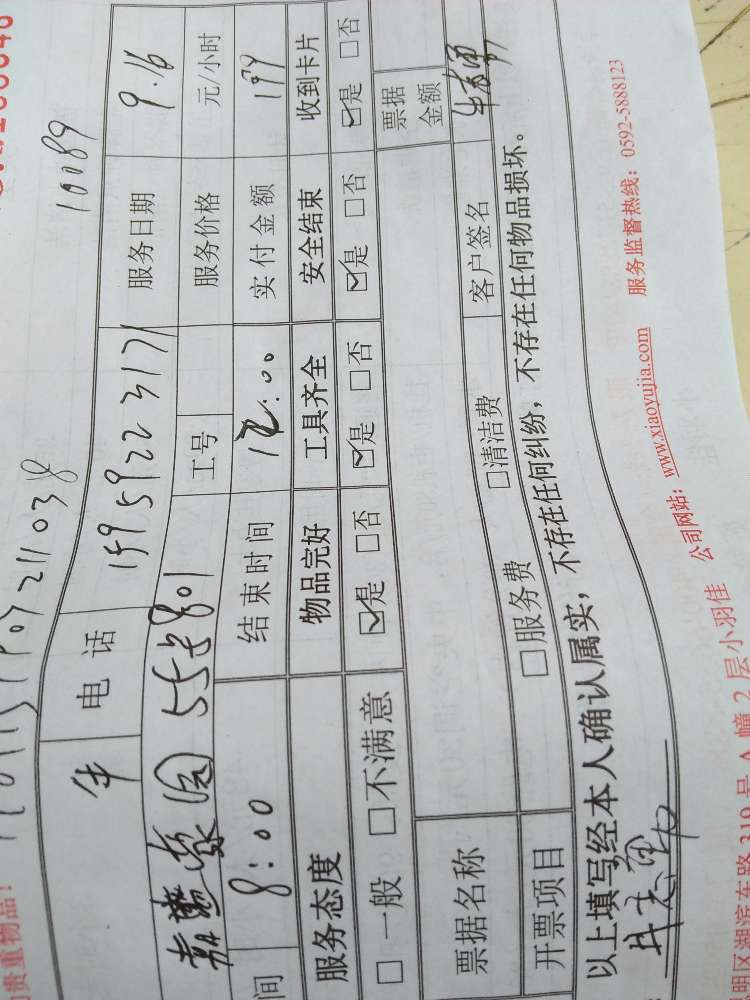 贵重物品！
10089
电话 15959223171 服务日期 9.16
55号801 工号 服务价格 元/小时
间 8:00 结束时间 12:00 实付金额 199
服务态度 物品完好 工具齐全 安全结束 收到卡片
□一般 □不满意 ☑是 □否 ☑是 □否 ☑是 □否 ☑是 □否
票据名称 票据金额
开票项目 □服务费 □清洁费 客户签名
以上填写经本人确认属实，不存在任何纠纷，不存在任何物品损坏。
公司网站：www.xiaoyujia.com 服务监督热线：0592-5888123
明区湖滨东路319号A幢2层小羽佳